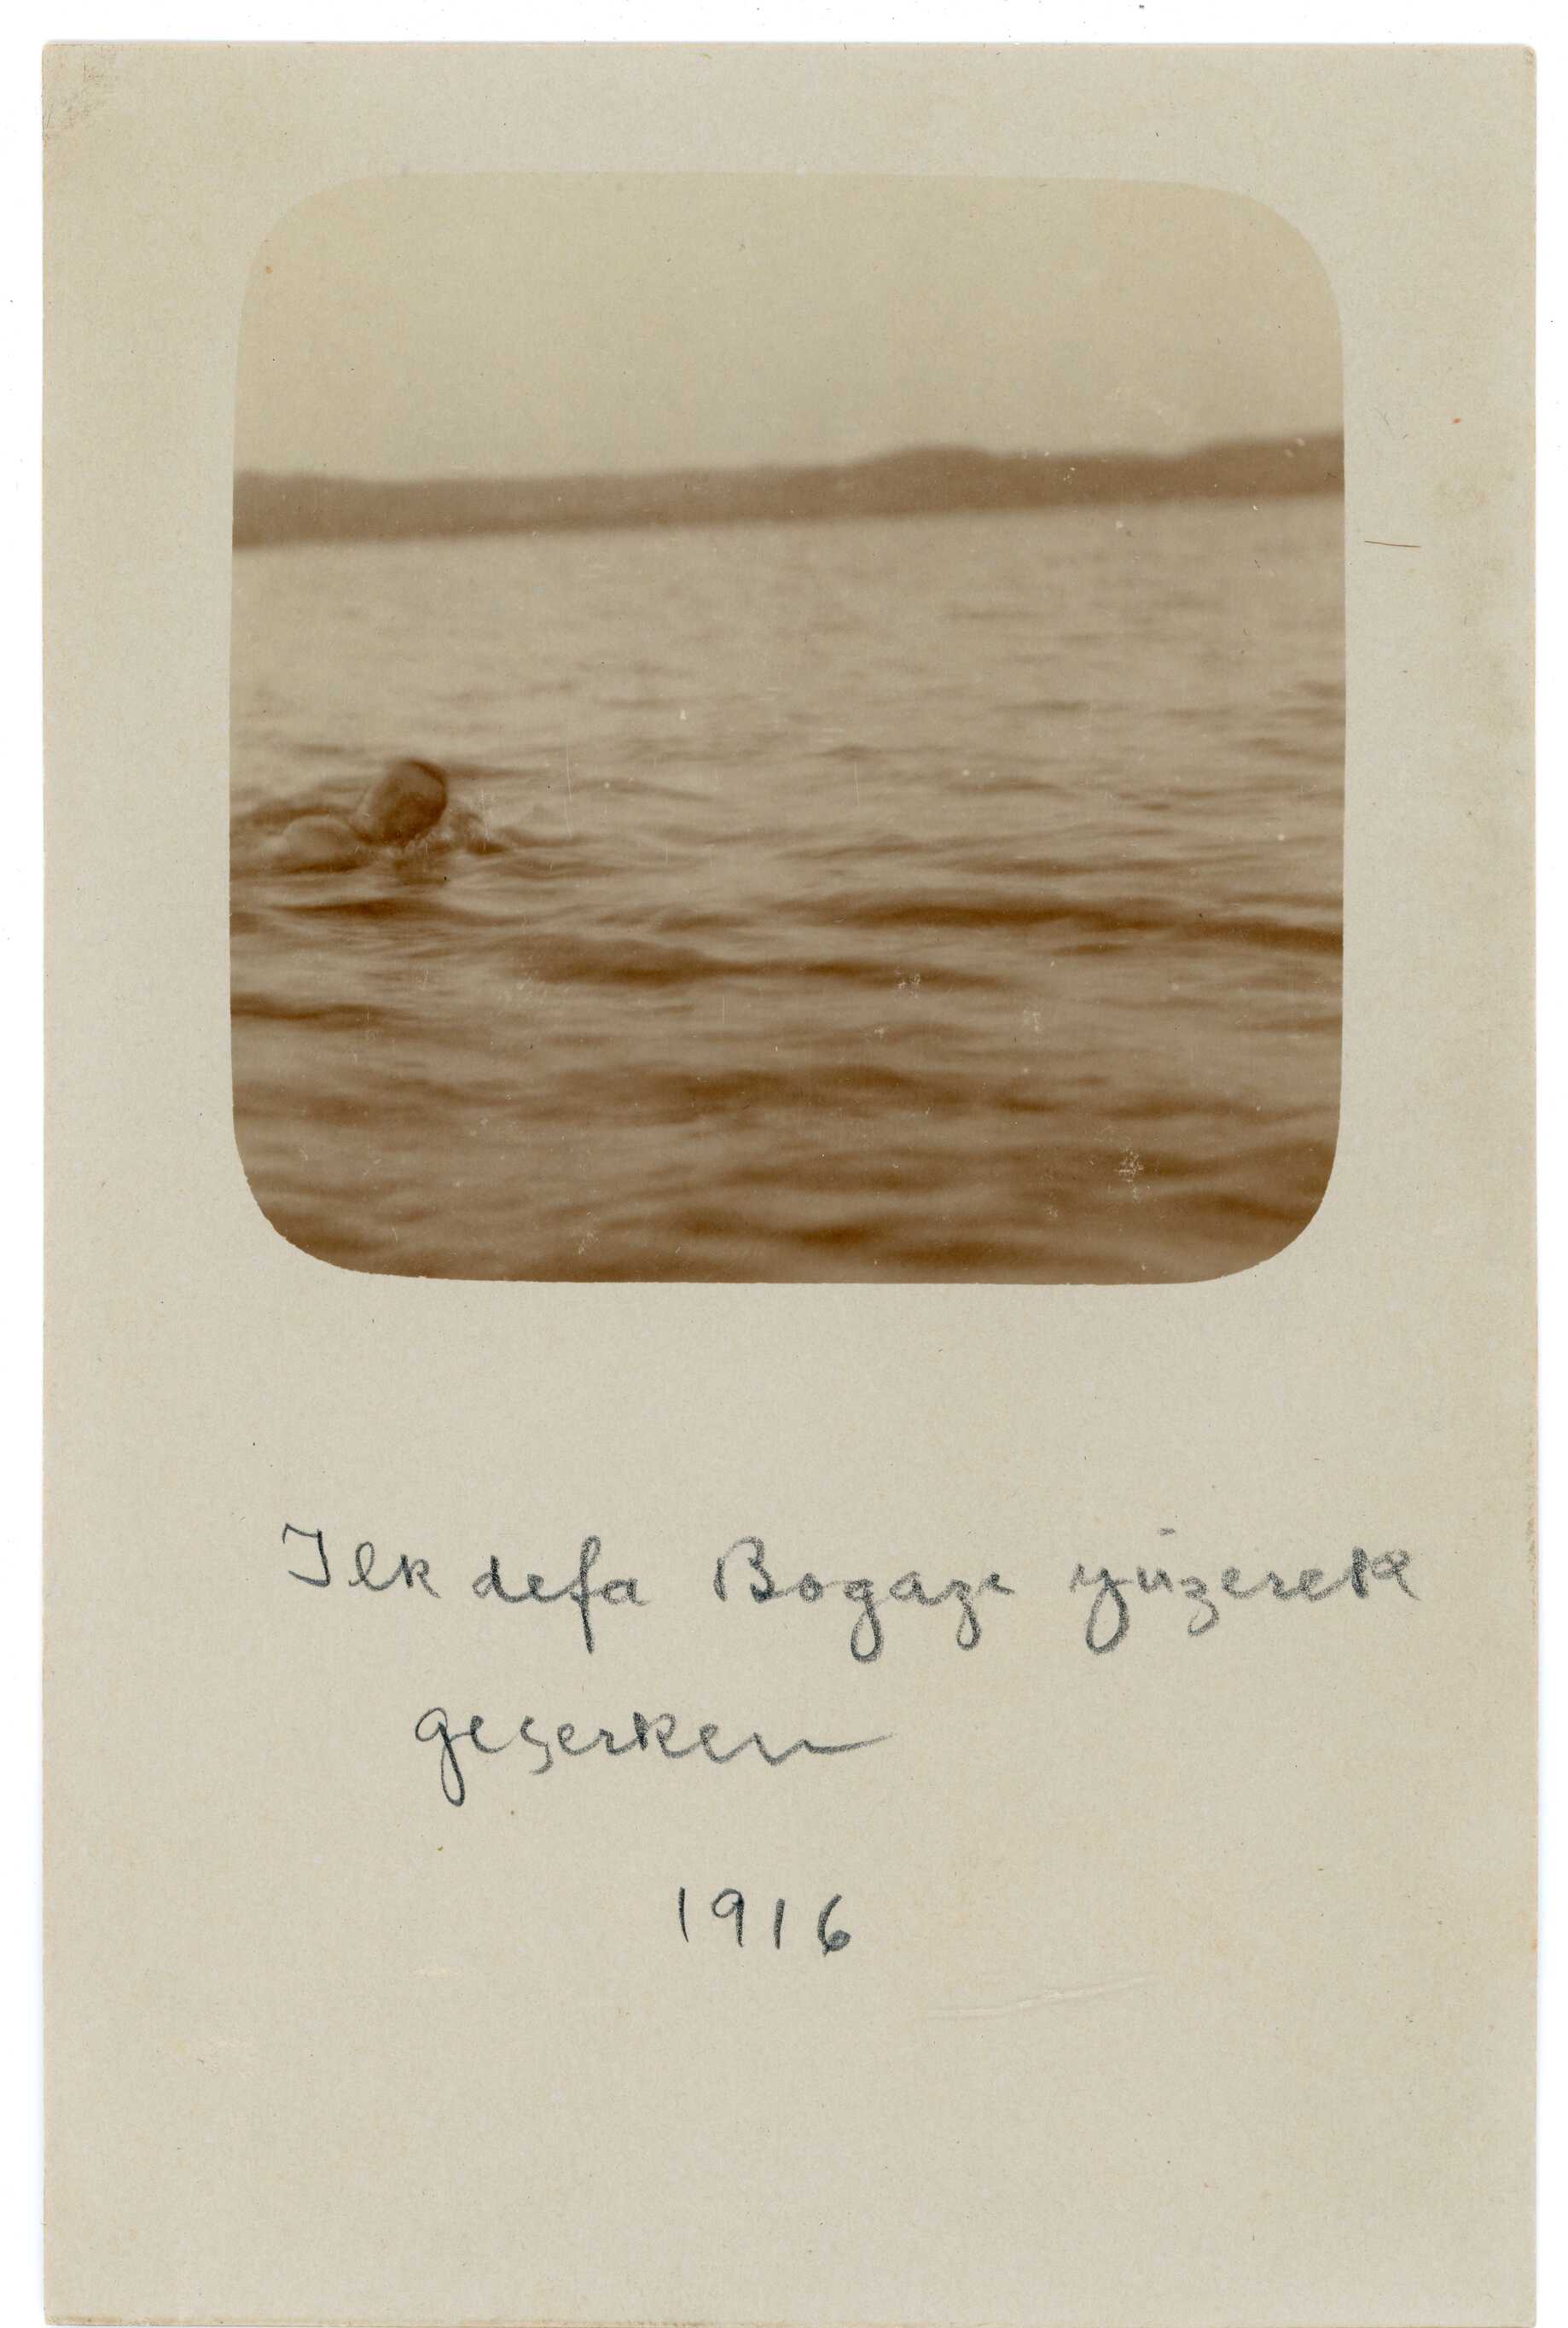 Ilk defa Bogazı yüzerek
geçerken
1916